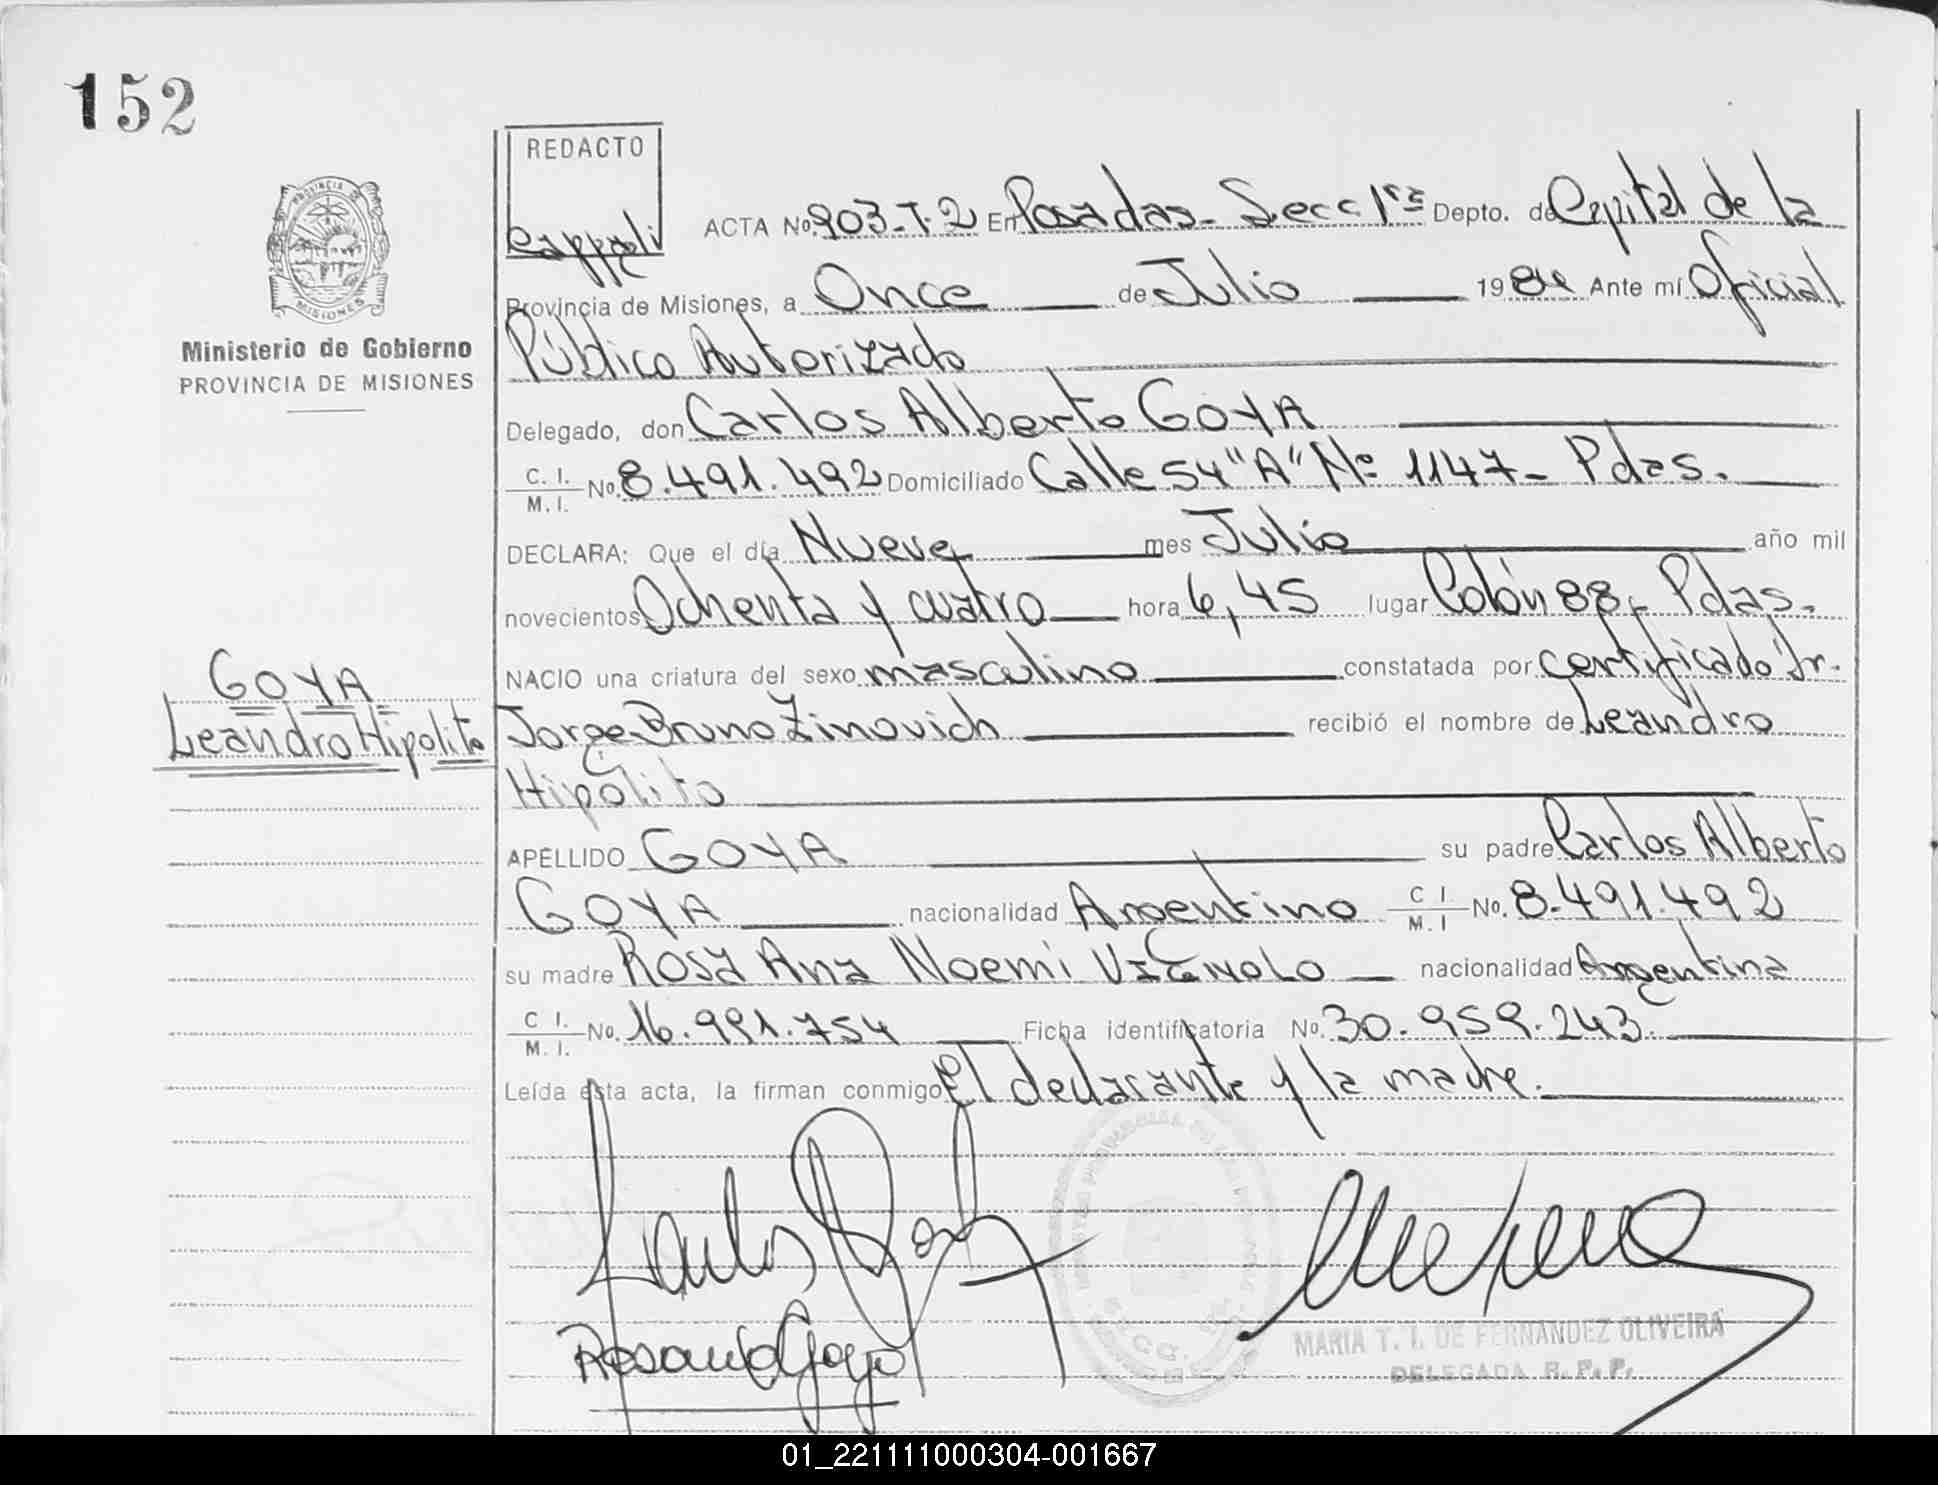 152
REDACTO
PROVINCIA DE
MISIONES
Ministerio de Gobierno
PROVINCIA DE MISIONES
ACTA No. 903-T.2 En Posadas - Secc 1ra Depto. de Capital de la
Provincia de Misiones, a Once de Julio 1984 Ante mí Oficial
Público Autorizado
Delegado, don Carlos Alberto GOYA
C. I. M. I. No. 8.491.492 Domiciliado Calle 54 "A" Nº 1147 - Pdas.
DECLARA: Que el día Nueve mes Julio año mil
novecientos Ochenta y cuatro hora 6,45 lugar Colón 88, Pdas.
NACIO una criatura del sexo masculino constatada por certificado Dr.
Jorge Bruno Zinovich recibió el nombre de Leandro
Hipólito
GOYA
Leandro Hipolito
APELLIDO GOYA su padre Carlos Alberto
GOYA nacionalidad Argentino C I M. I No. 8.491.492
su madre Rosa Ana Noemi nacionalidad Argentina
C I. M. I. No. 16.991.754 Ficha identificatoria No. 30.959.243.
Leída esta acta, la firman conmigo El declarante y la madre.
MARIA T. I. DE FERNANDEZ OLIVEIRA
DELEGADA R. P. P.
01_221111000304-001667